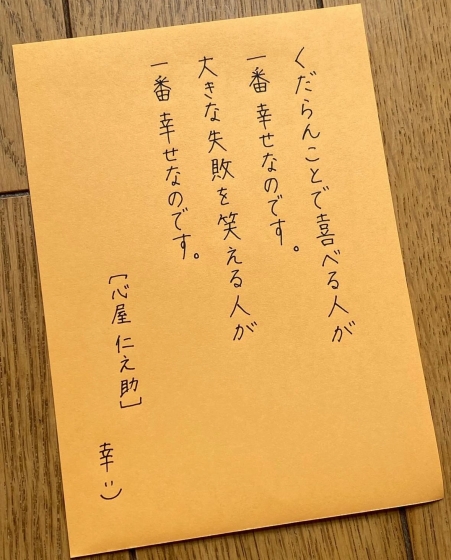 くだらんことで喜べる人が
一番 幸せなのです。
大きな失敗を笑える人が
一番 幸せなのです。
［心屋 仁之助］
幸 :)